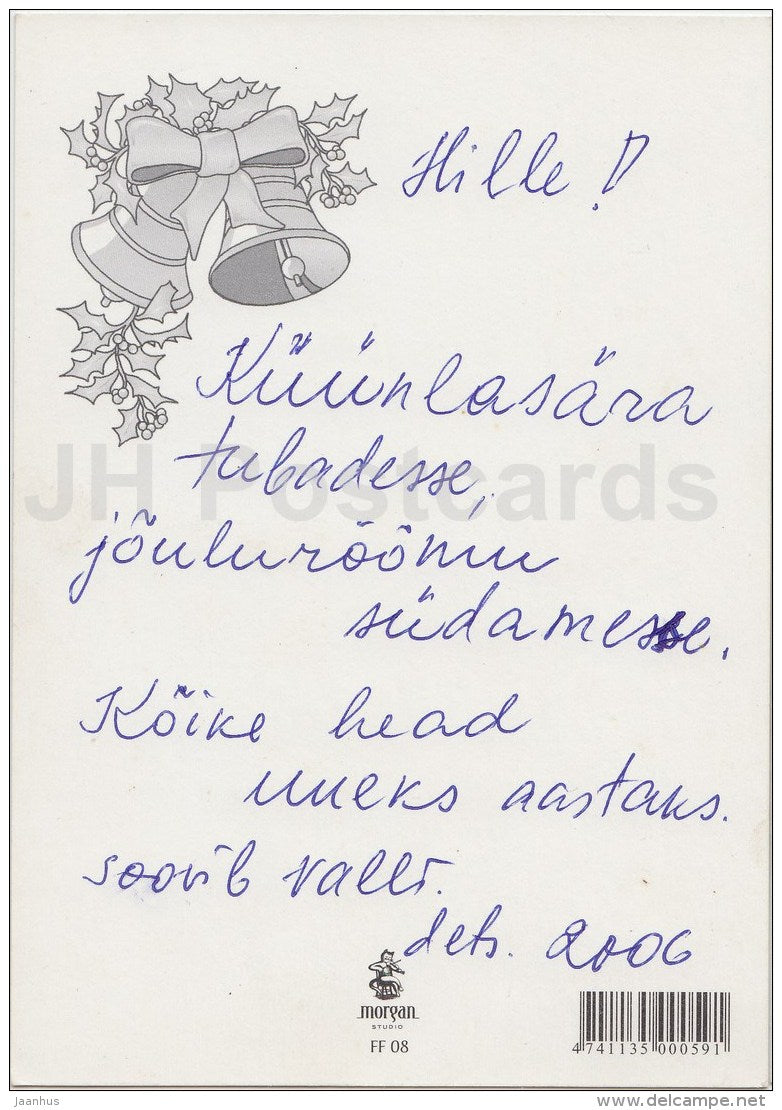 Hille!
Küünlasära
tubadesse,
jõulurõõmu
südamesse.
Kõike head
uueks aastaks.
soovib Valli.
dets. 2006
JH Postcards
morgan
STUDIO
FF 08
4 741135 000591
jaanhus
www.delcampe.net